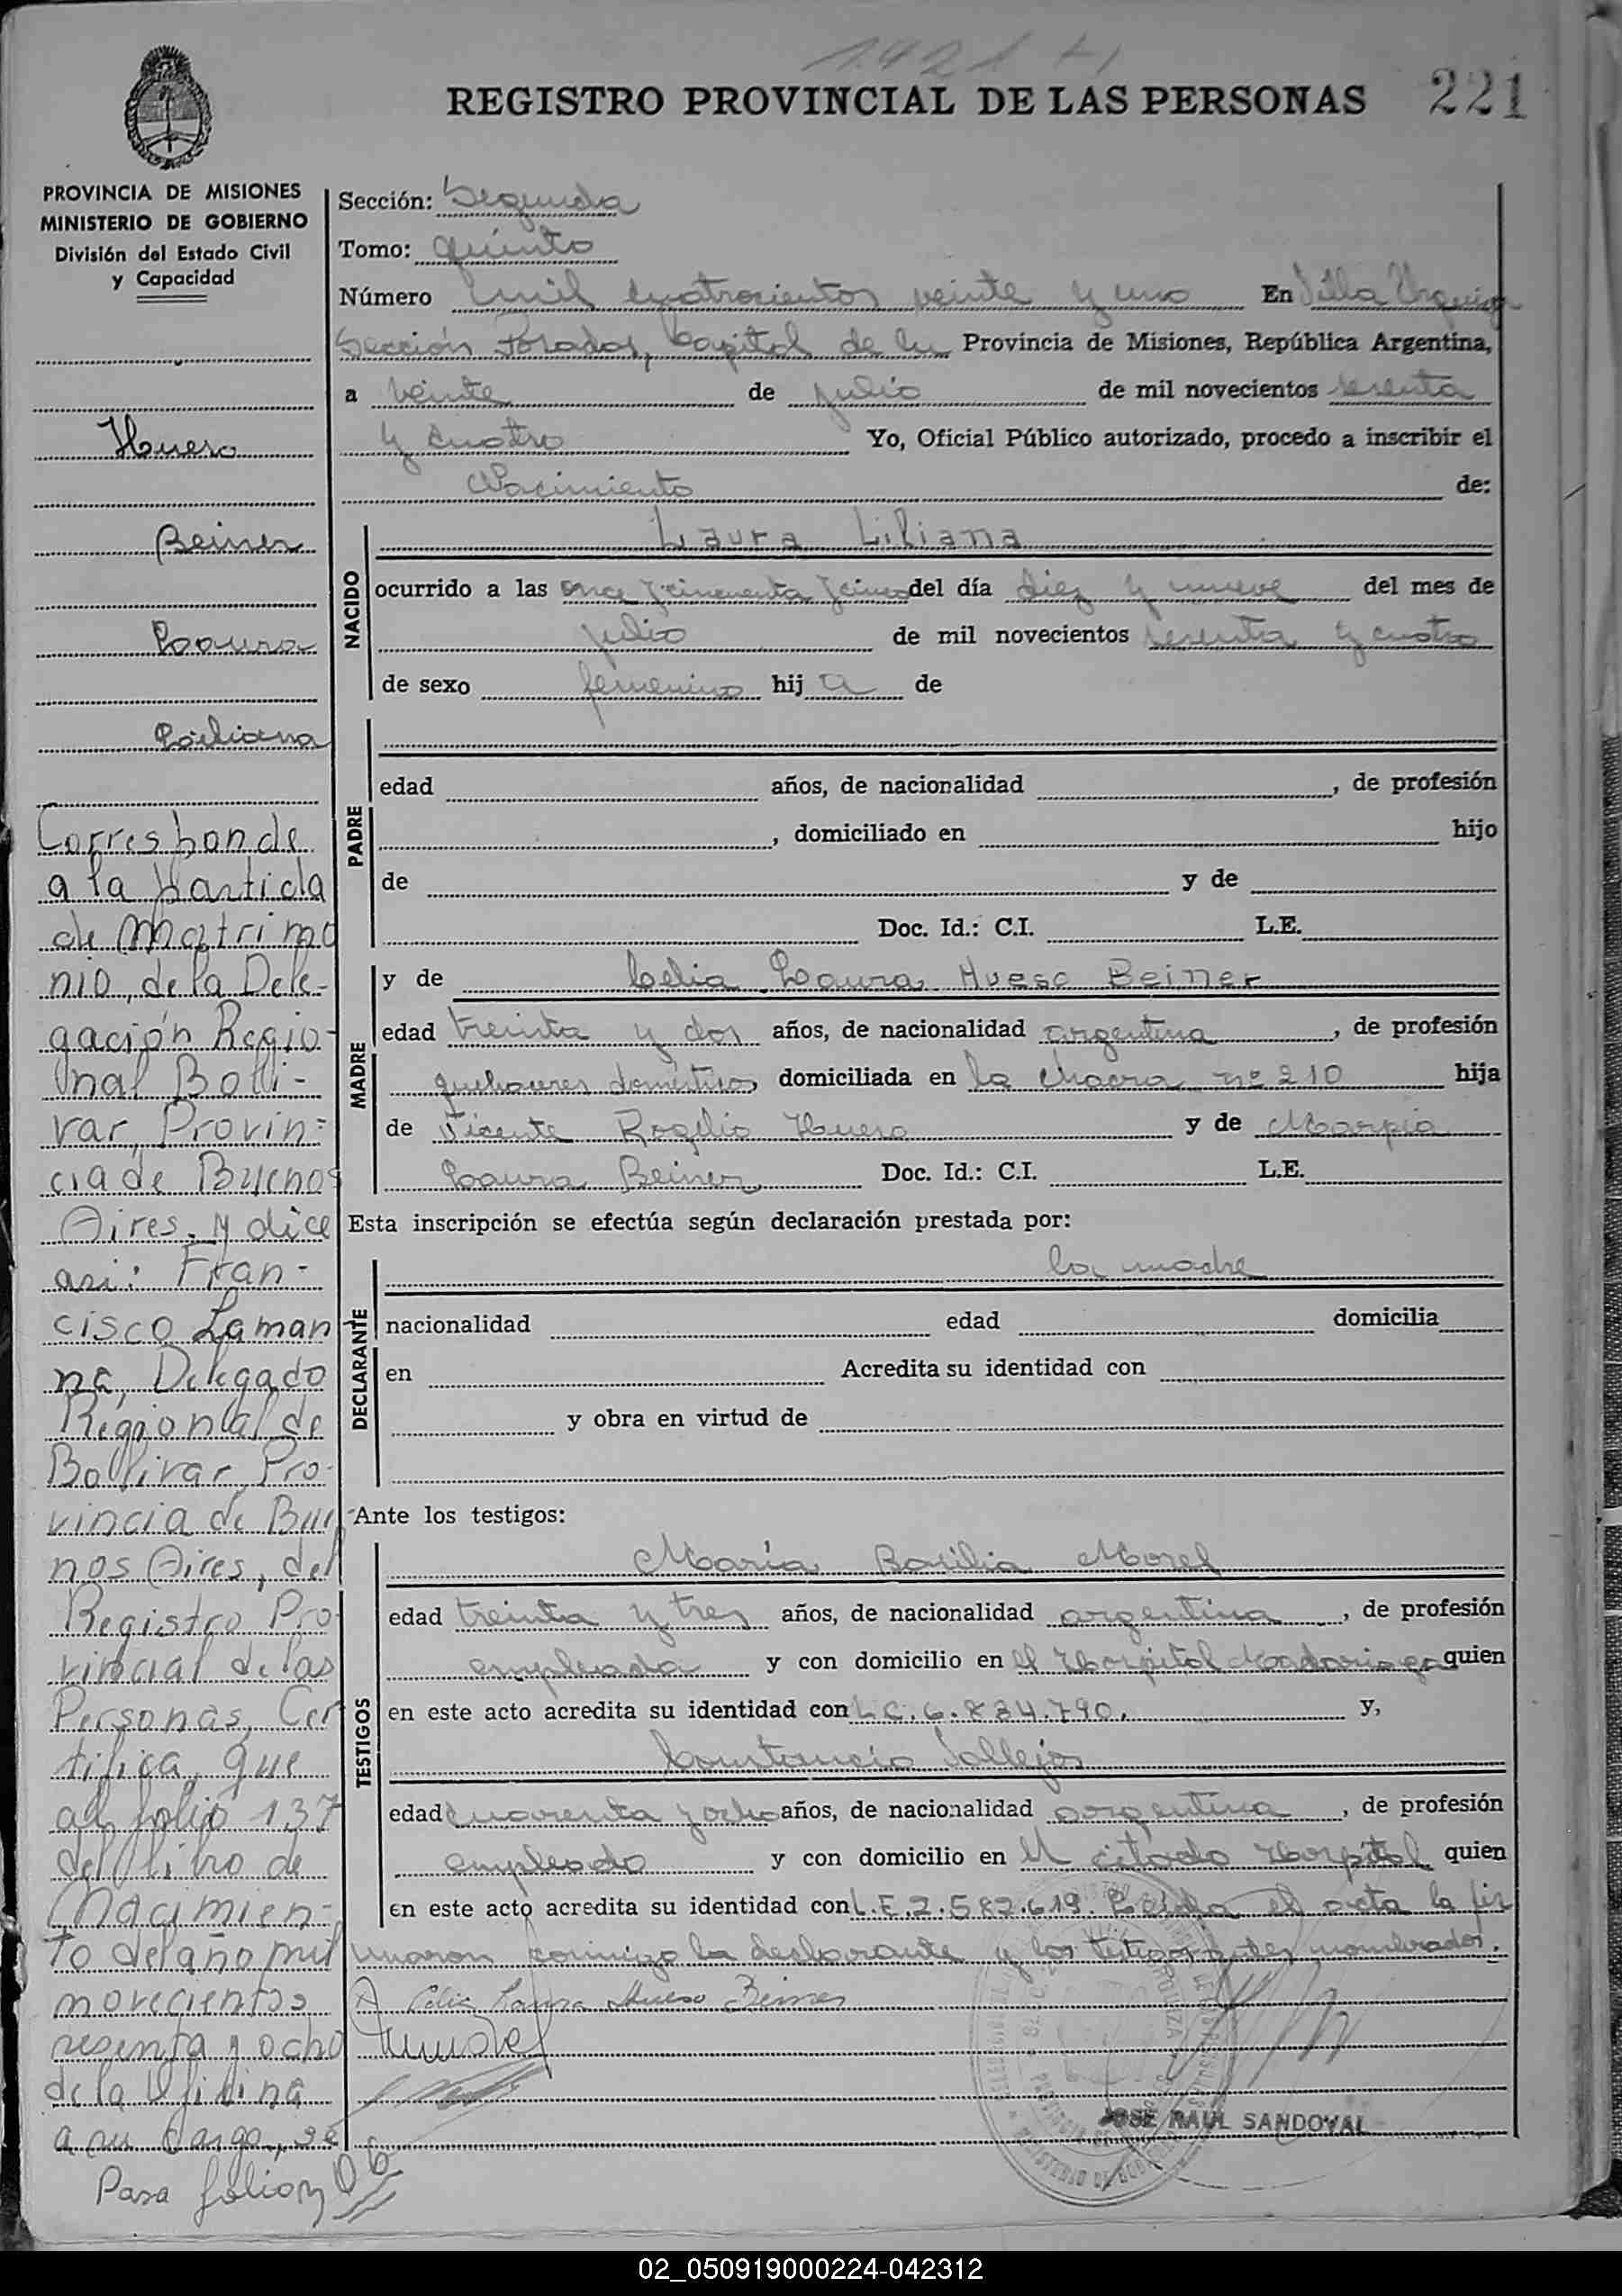 1421 H
REGISTRO PROVINCIAL DE LAS PERSONAS 221
PROVINCIA DE MISIONES
MINISTERIO DE GOBIERNO
División del Estado Civil
y Capacidad
Hueso
Beiner
Laura
Liliana
Corresponde
a la Partida
de Matrimo
nio, de la Dele-
gación Regio-
nal Bolli-
var, Provin-
cia de Buenos
Aires, y dice
asi: Fran-
cisco Laman
na, Delegado
Regional de
Bollivar, Pro-
vincia de Bue
nos Aires, del
Registro Pro
vincial de las
Personas, Cer
tifica, que
al folio 137
del libro de
Nacimien-
to del año mil
novecientos
sesenta y ocho
de la Oficina
a su Cargo, se
Pasa folio
Sección: Segunda
Tomo: quinto
Número mil cuatrocientos veinte y uno En Villa Urquiza
Sección Posadas, Capital de la Provincia de Misiones, República Argentina,
a veinte de julio de mil novecientos sesenta
y cuatro Yo, Oficial Público autorizado, procedo a inscribir el
Nacimiento de:
NACIDO
Laura Liliana
ocurrido a las once y cincuenta y cinco del día diez y nueve del mes de
julio de mil novecientos sesenta y cuatro
de sexo femenino hij a de
PADRE
edad años, de nacionalidad , de profesión
, domiciliado en hijo
de y de
Doc. Id.: C.I. L.E.
MADRE
y de Celia Laura Hueso Beiner
edad treinta y dos años, de nacionalidad argentina , de profesión
quehaceres domésticos domiciliada en la chacra nº 210 hija
de Vicente Rogelio Hueso y de
Laura Beiner Doc. Id.: C.I. L.E.
Esta inscripción se efectúa según declaración prestada por:
DECLARANTE
la madre
nacionalidad edad domicilia
en Acredita su identidad con
y obra en virtud de
Ante los testigos:
TESTIGOS
María Basilia Morel
edad treinta y tres años, de nacionalidad argentina , de profesión
empleada y con domicilio en el Hospital Madariaga quien
en este acto acredita su identidad con L.C. 6.834.790, y,
Constancio Vallejos
edad cuarenta y ocho años, de nacionalidad argentina , de profesión
empleado y con domicilio en el citado Hospital quien
en este acto acredita su identidad con L.E. 2.582.619. Leida el acta la fir
maron conmigo la declarante y los testigos antes nombrados.
Celia Laura Hueso Beiner
JOSE RAUL SANDOVAL
02_050919000224-042312